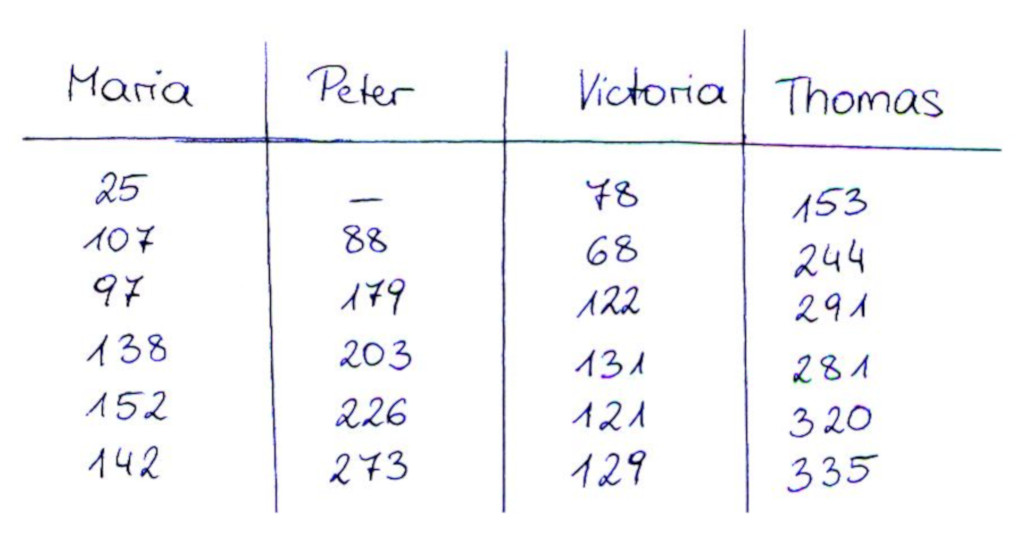 Maria Peter Victoria Thomas
25 — 78 153
107 88 68 244
97 179 122 291
138 203 131 281
152 226 121 320
142 273 129 335